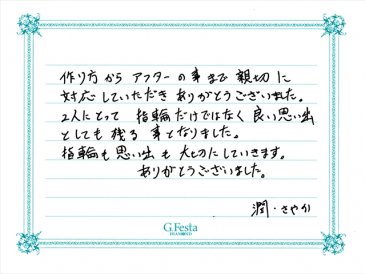 作り方から アフターの事まで 親切に
対応していただき ありがとうございました。
2人にとって 指輪だけではなく 良い思い出
としても 残る 事となりました。
指輪も 思い出 も 大切にしていきます。
ありがとうございました。
潤・さやか
G.Festa
DIAMOND